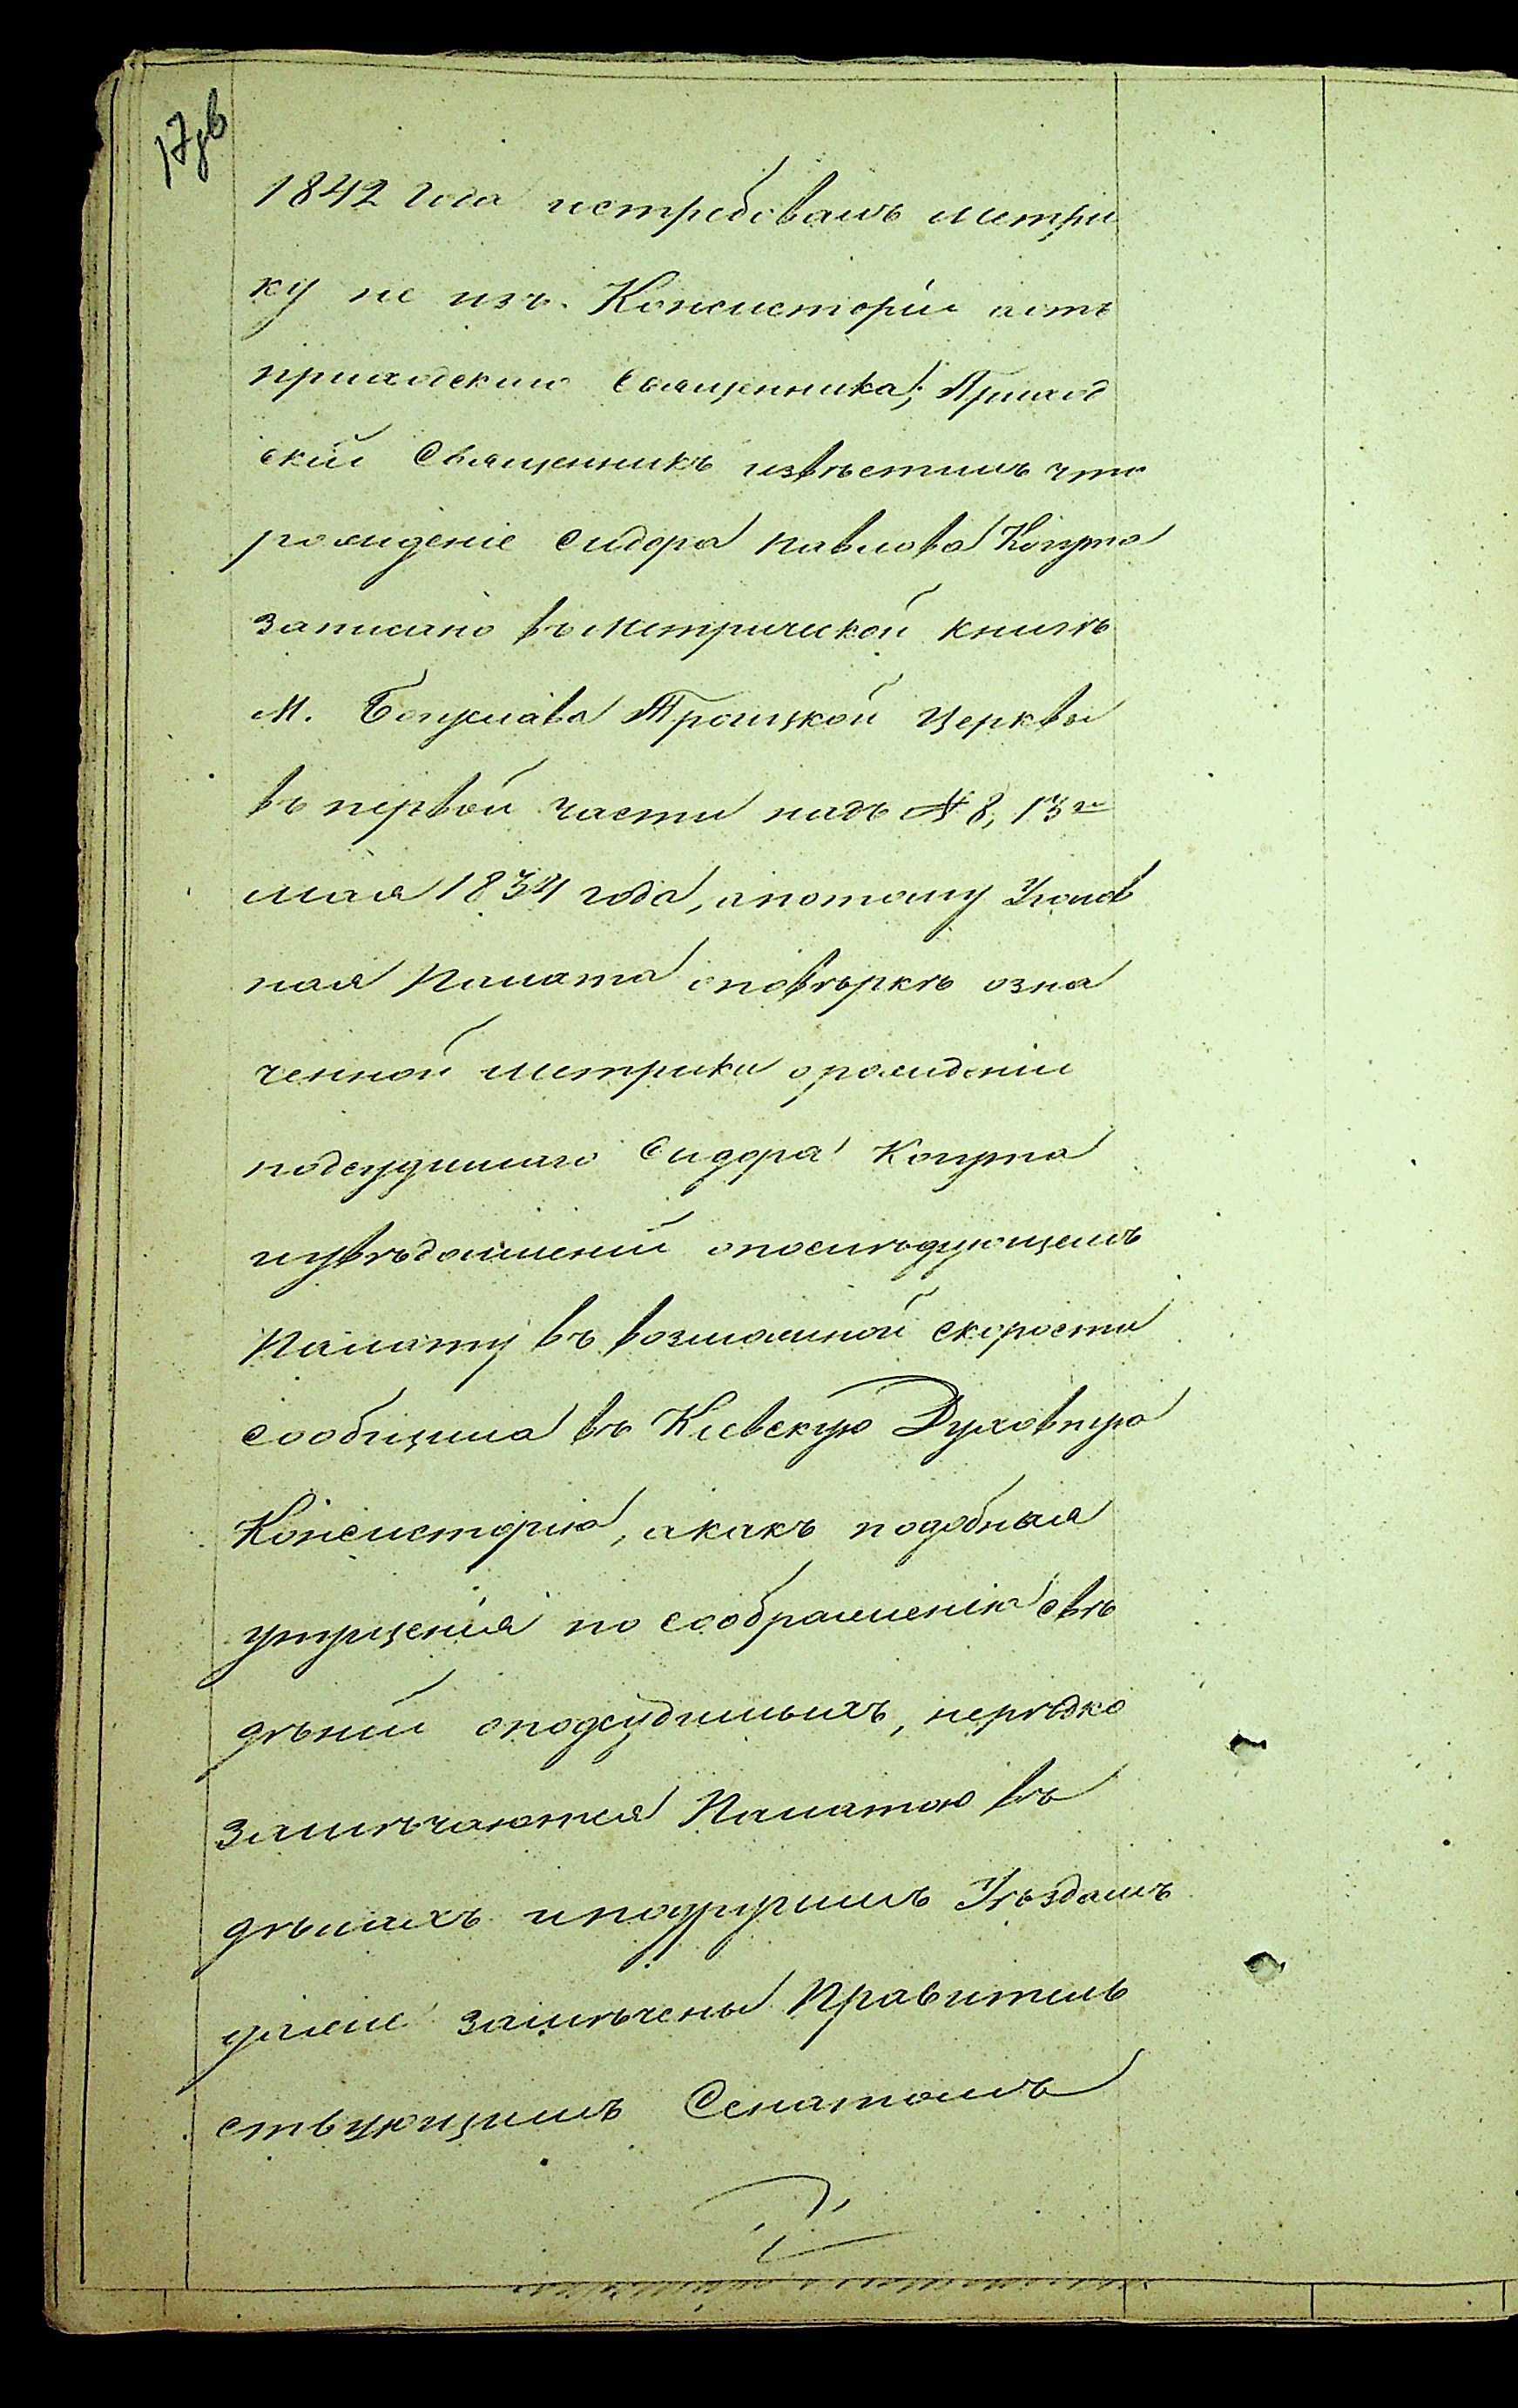 17 об
1842 года истребовалъ метри
ку не изъ Консисторіи аотъ
приходскаго Священника; Приход
скій Священникъ извѣстилъ что
рожденіе Сидора Павлова Когута
записано въ Метрической книгѣ
М. Богуслава Троицкой Церкви
въ первой части подъ № 8, 13го
мая 1834 года, апотому Уголов
ная Палата оповѣркѣ озна
ченной метрики орожденіи
подсудимаго Сидора Когута
иувѣдомленіи опослѣдующемъ
Палату въ возможной скорости
сообщила въ Кіевскую Духовную
Консисторію, акакъ подобныя
упущенія по соображенію свѣ
дѣній оподсудимыхъ, нерѣдко
замѣчаются Палатою въ
дѣлахъ иподругимъ Уѣздамъ
ужеи замѣчены Правитель
ствующимъ Сенатомъ